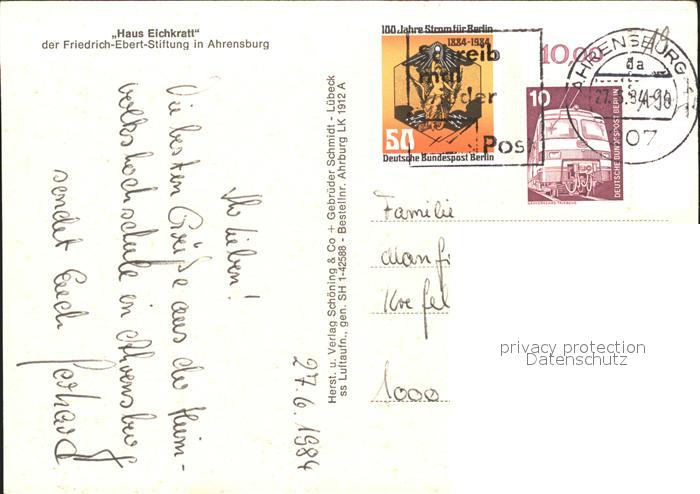 „Haus Eichkratt“
der Friedrich-Ebert-Stiftung in Ahrensburg
Ihr Lieben!
Die besten Grüße aus der Heim-
volkshochschule in Ahrensburg
sendet Euch Gerhard
27.6.1984
Herst. u. Verlag Schöning & Co + Gebrüder Schmidt - Lübeck
ss Luftaufn., gen. SH 1-42588 - Bestellnr. Ahrburg LK 1912 A
100 Jahre Strom für Berlin
1884-1984
50
Deutsche Bundespost Berlin
Schreib
mal
wieder
Post
10,00
10
DEUTSCHE BUNDESPOST BERLIN
NAHVERKEHRS-TRIEBZUG
AHRENSBURG
da
07
Familie
Manf
Krefel
1000
privacy protection
Datenschutz